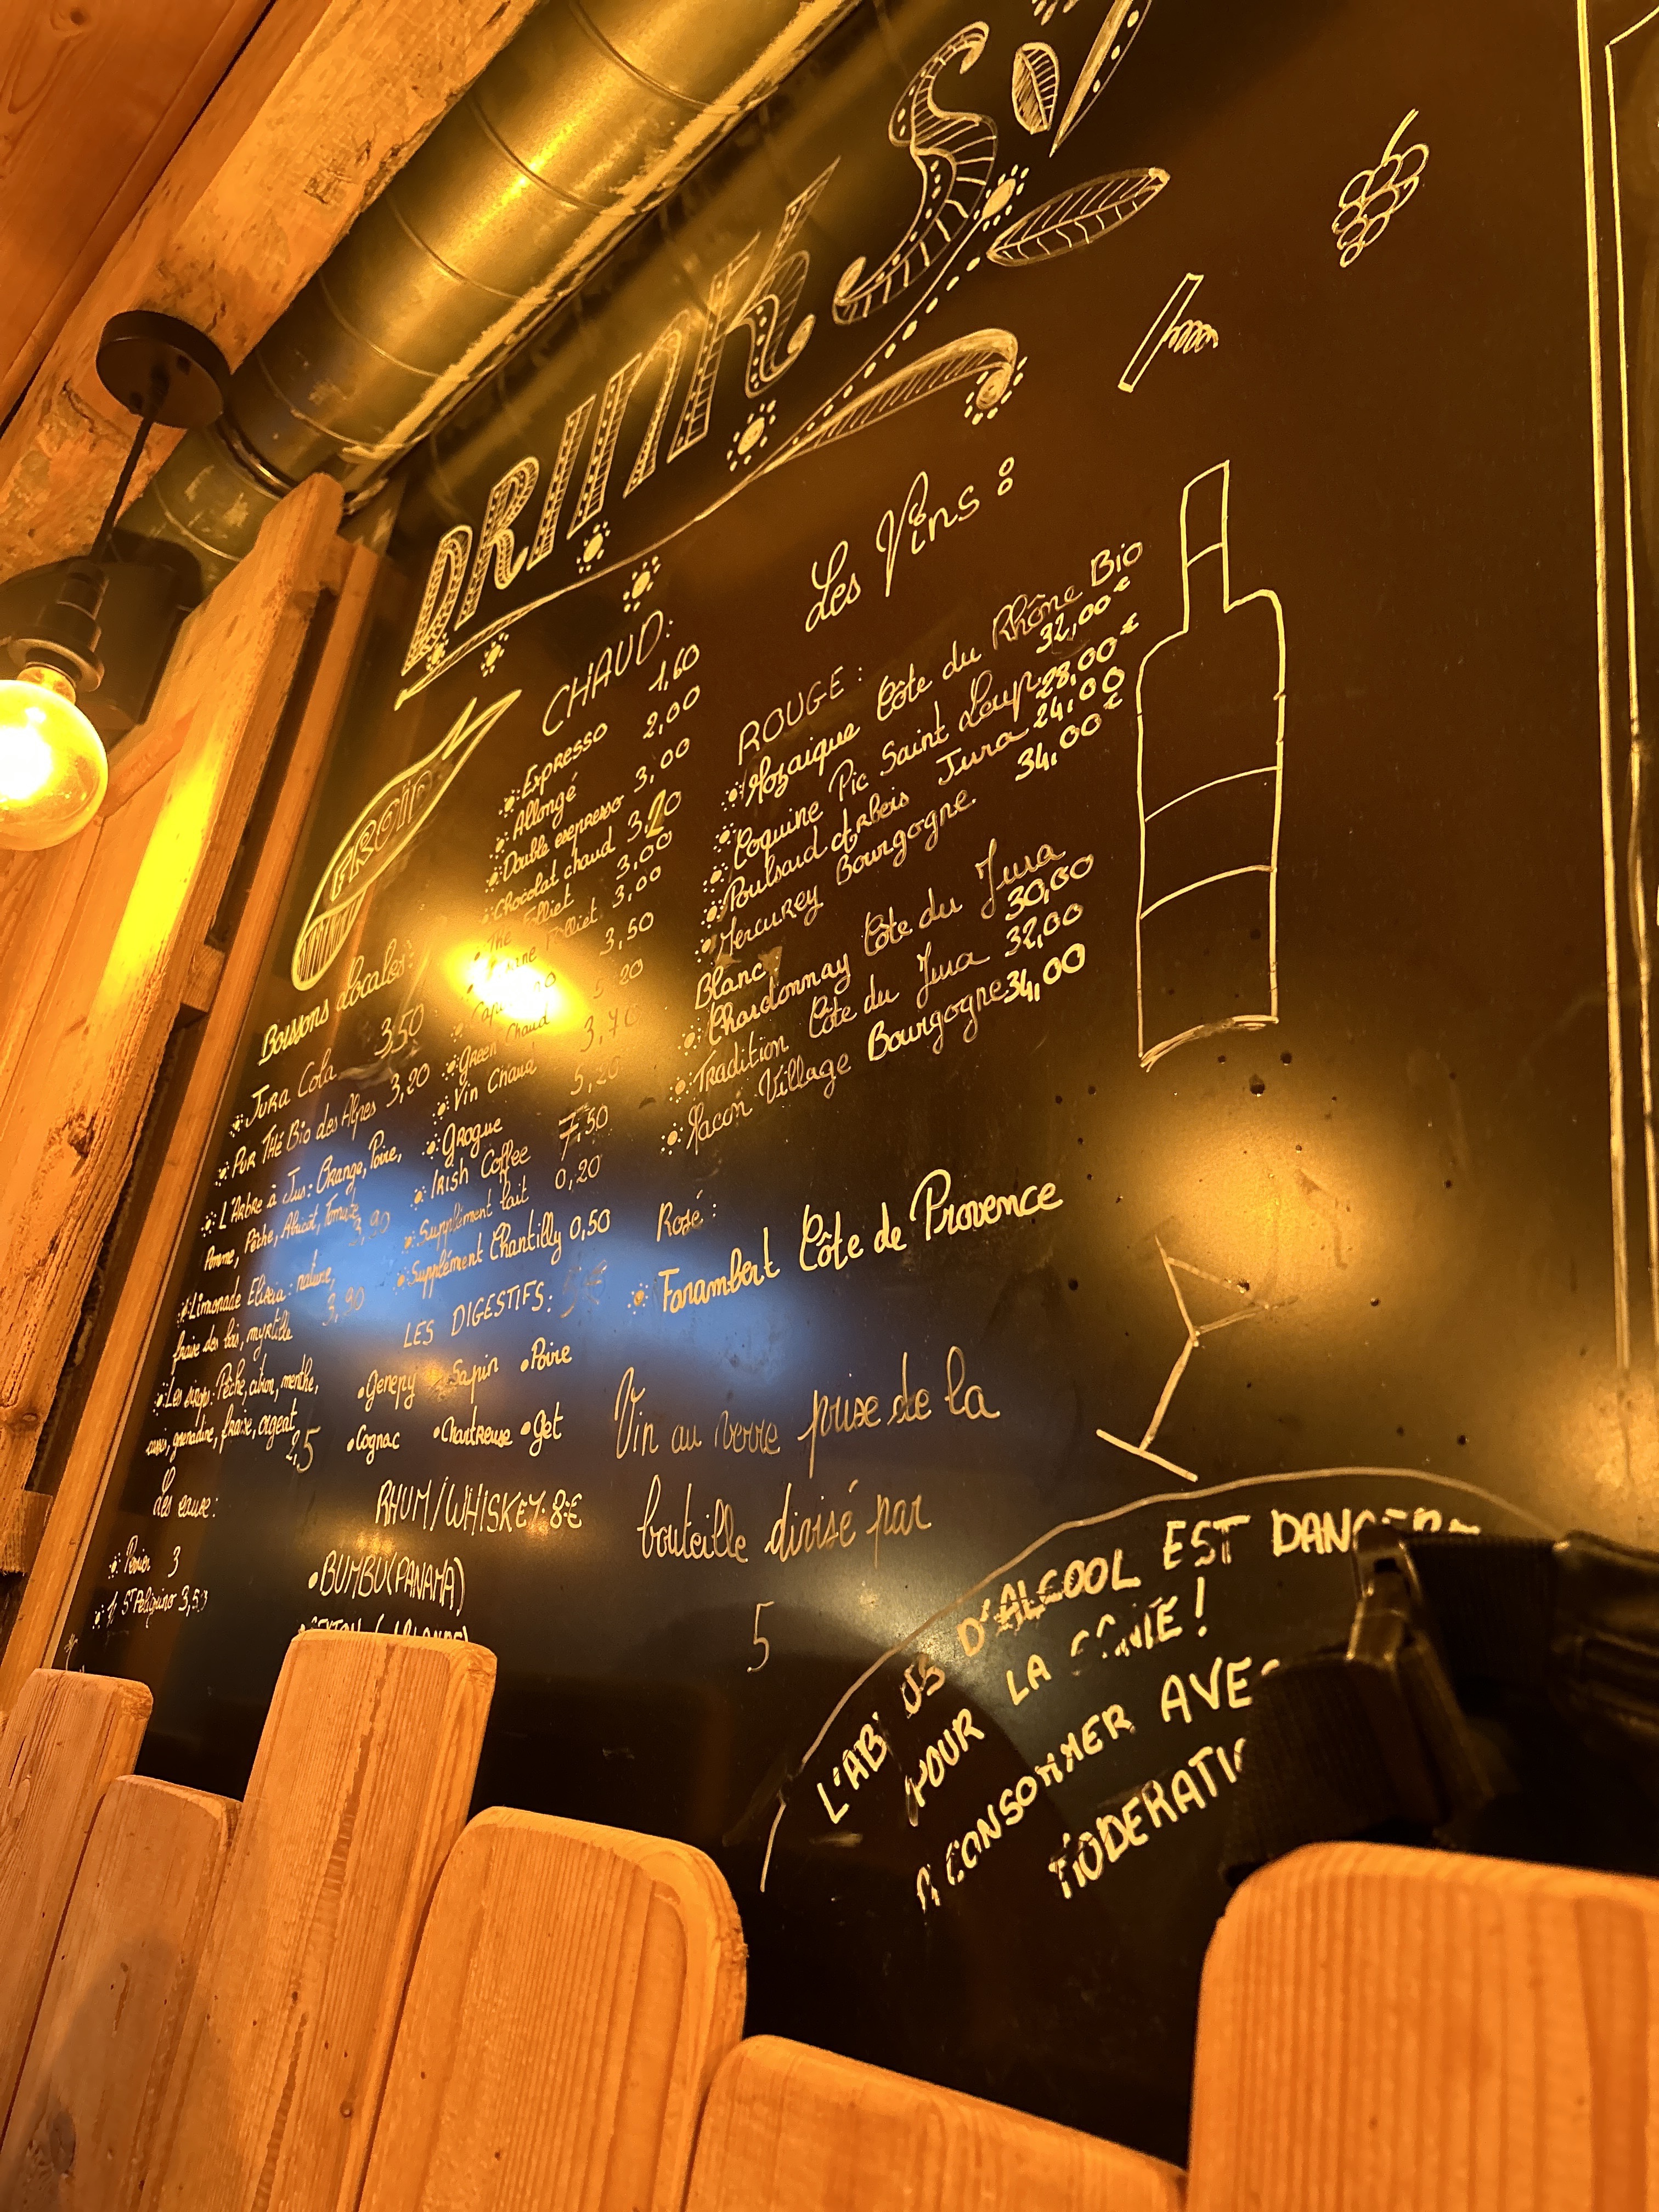 DRINKS
FROID
Boissons Locales:
Jura Cola 3,50
Pur Thé Bio des Alpes 3,20
L'Arbre à Jus: Orange, Poire,
Pomme, Pêche, Abricot, Tomate 3,90
Limonade Elixia: nature,
fraise des bois, myrtille 3,90
Les sirops: Pêche, citron, menthe,
cassis, grenadine, fraise, orgeat 2,5
Les eaux:
Perrier 3
St Peligrino 3,50
CHAUD:
Expresso 1,60
Allongé 2,00
Double expresso 3,00
Chocolat chaud 3,20
Thé Folliet 3,00
Folliet 3,00
3,50
Green Chaud 5,20
Vin Chaud 3,70
Grogue 5,20
Irish Coffee 7,50
Supplément lait 0,20
Supplément Chantilly 0,50
LES DIGESTIFS: 5€
•Genepy •Sapin •Poire
•Cognac •Chartreuse •Get
RHUM/WHISKEY: 8€
•BUMBU(PANAMA)
Les Vins:
ROUGE:
Mozaique Côte du Rhône Bio 32,00€
Coquine Pic Saint Loup 28,00€
Poulsard Arbois Jura 24,00
Mercurey Bourgogne 34,00€
Blanc:
Chardonnay Côte du Jura 30,00
Tradition Côte du Jura 32,00
Macon Village Bourgogne 34,00
Rosé:
Farambert Côte de Provence
Vin au verre prise de la
bouteille divisé par
5
L'ABUS D'ALCOOL EST
POUR LA SANTE!
A CONSOMMER